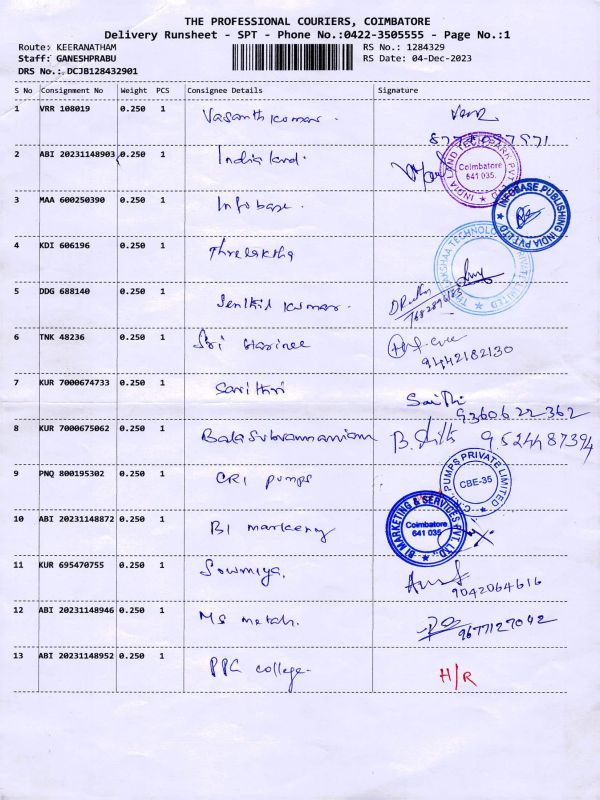 THE PROFESSIONAL COURIERS, COIMBATORE
Delivery Runsheet - SPT - Phone No.:0422-3505555 - Page No.:1
Route: KEERANATHAM RS No.: 1284329
Staff: GANESHPRABU RS Date: 04-Dec-2023
DRS No.: DCJB128432901
S No Consignment No Weight PCS Consignee Details Signature
1 VRR 108019 0.250 1 Vasanth kumar.
2 ABI 20231148903 0.250 1 India land.
INDIA LAND PVT LTD Coimbatore 641 035.
3 MAA 600250390 0.250 1 Infobase.
INFOBASE PUBLISHING INDIA PVT.LTD
4 KDI 606196 0.250 1 Threelaksha
TECHNOLOGIES PRIVATE LIMITED
5 DDG 688140 0.250 1 Senthil kumar.
6 TNK 48236 0.250 1 Sri Harinee
9442182130
7 KUR 7000674733 0.250 1 Savithri
9360622362
8 KUR 7000675062 0.250 1 Balasubramaniam
9524487394
9 PNQ 800195302 0.250 1 CRI pumps
C.R.I. PUMPS PRIVATE LIMITED CBE-35
10 ABI 20231148872 0.250 1 BI marketing
BI MARKETING & SERVICES PVT. LTD. Coimbatore 641 035
11 KUR 695470755 0.250 1 Sowmiya.
9042064616
12 ABI 20231148946 0.250 1 MS metal.
9677127042
13 ABI 20231148952 0.250 1 PPG college.
H/R